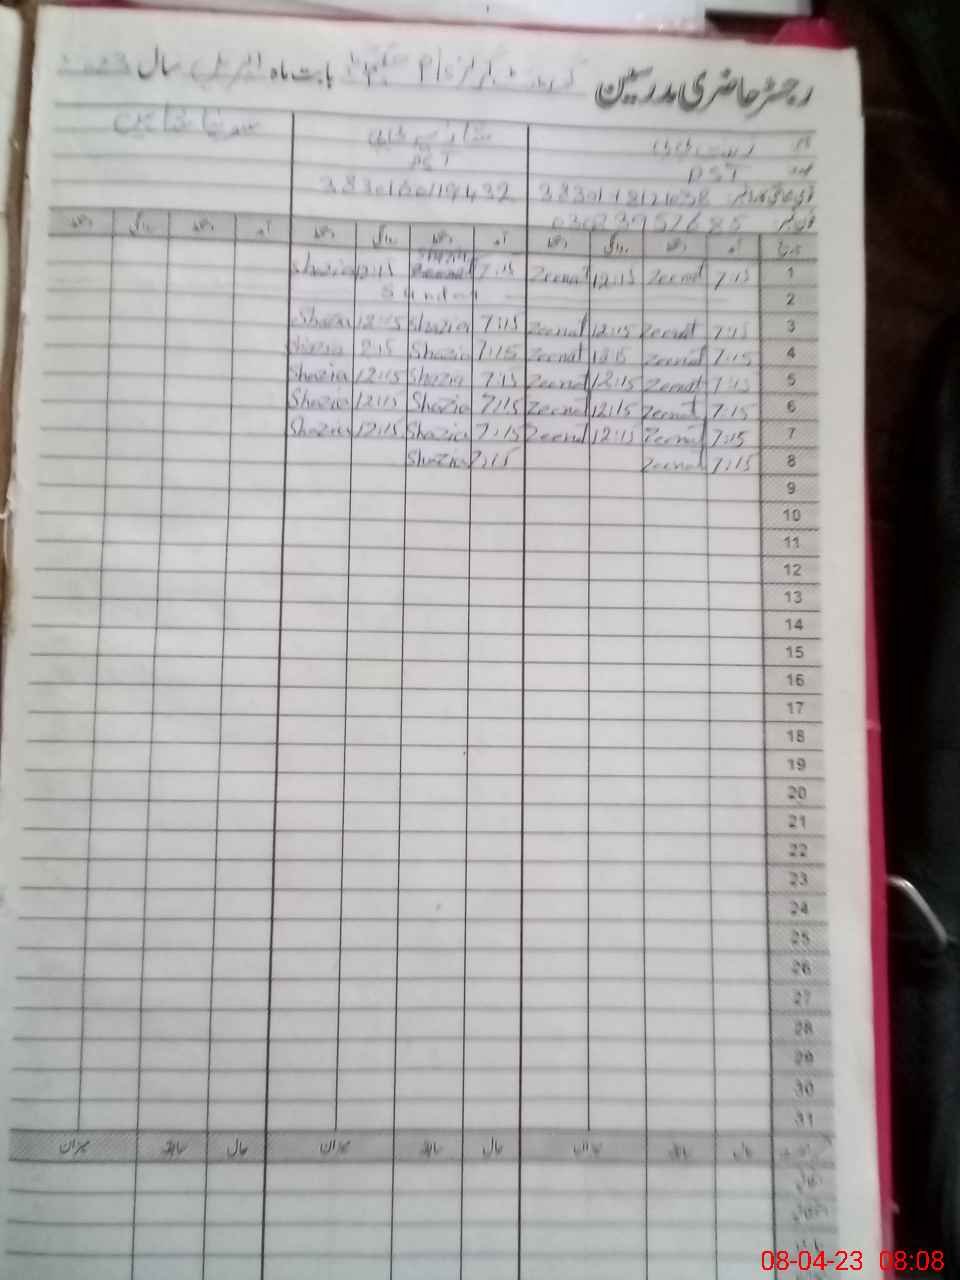 رجسٹر حاضری مدرسین بابت ماہ اپریل سال
نام
زینت بی بی
شازیہ بی بی
عہدہ PST PST
قومی شناختی کارڈ نمبر 3830160119432
فون نمبر
تاریخ آمد دستخط روانگی دستخط آمد دستخط روانگی دستخط آمد دستخط روانگی دستخط
1 7:15 Zeenat 12:15 Zeenat 7:15 Shazia 12:15 Shazia
2 Sunday
3 7:15 Zeenat 12:15 Zeenat 7:15 Shazia 12:15 Shazia
4 7:15 Zeenat 12:15 Zeenat 7:15 Shazia Shazia
5 7:15 Zeenat 12:15 Zeenat 7:15 Shazia 12:15 Shazia
6 7:15 Zeenat 12:15 Zeenat 7:15 Shazia 12:15 Shazia
7 7:15 Zeenat 12:15 Zeenat 7:15 Shazia 12:15 Shazia
8 7:15 Zeenat 7:15 Shazia
9
10
11
12
13
14
15
16
17
18
19
20
21
22
23
24
25
26
27
28
29
30
31
حال سابقہ میزان حال سابقہ میزان حال سابقہ میزان
08-04-23 08:08